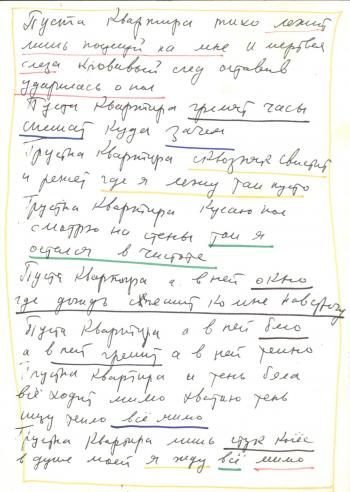 Пуста квартира тихо лежит
лишь поцелуй на мне и мертвая
слеза кровавый след оставив
ударилась о пол
Пуста квартира гремят часы
спешат куда зачем
Грустна квартира сквозняк свистит
и режет где я лежу там пусто
Грустна квартира кусаю пол
смотрю на стены там я
остался в чистоте
Пуста квартира а в ней окно
где дождь спешит ко мне навстречу
Пуста квартира а в ней
а в ней гремит а в ней темно
Грустна квартира и тень бела
всё ходит мимо хватаю тень
ищу тепло всё мимо
Грустна квартира лишь стук колёс
в душе моей я жду всё мимо